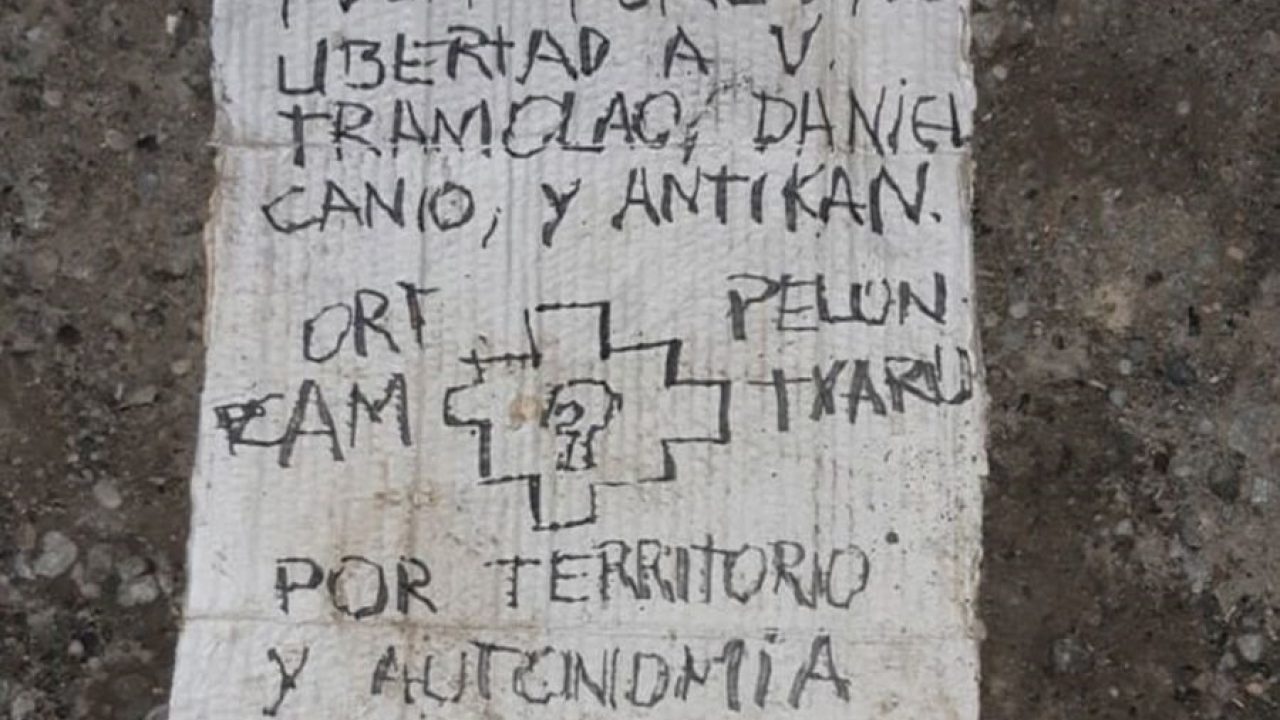 LIBERTAD A V.
TRAMOLAO, DANIEL
CANIO, Y ANTIKAN.
ORT PELLUN
CAM TXARU
POR TERRITORIO
Y AUTONOMÍA